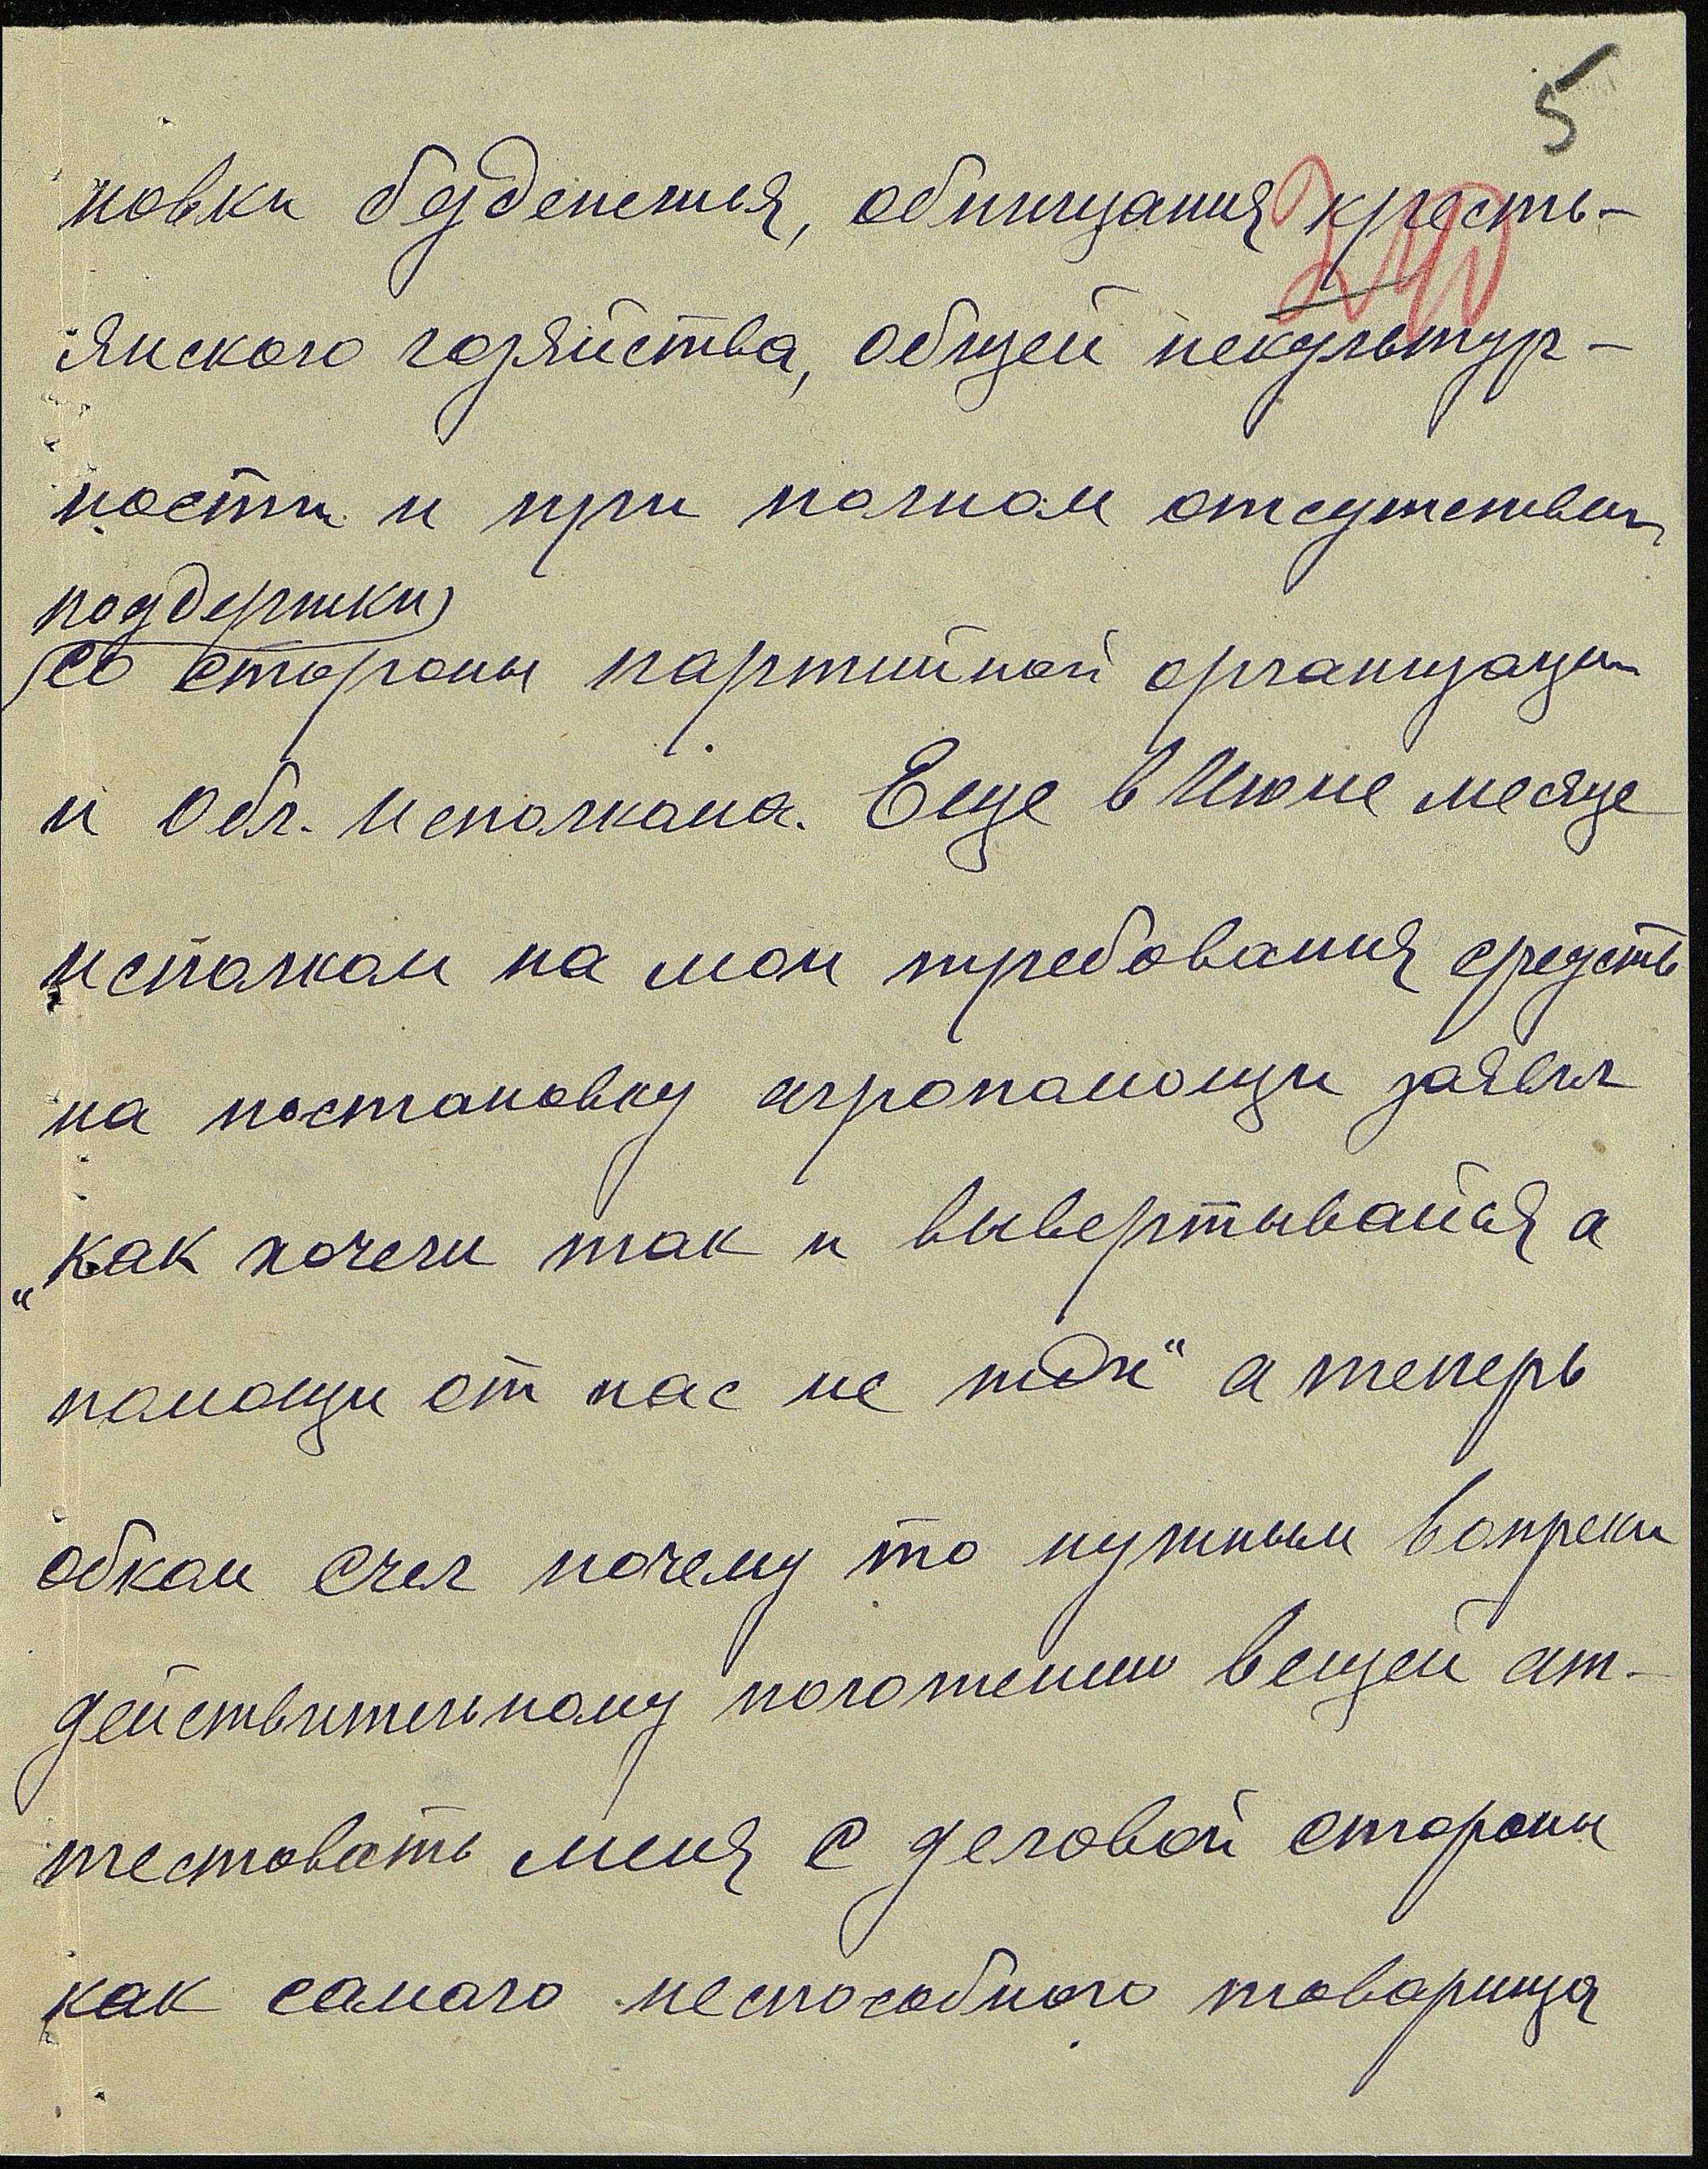 5
240
новки безденежья, обнищания кресть-
янского хозяйства, общей некультур-
ности и при полном отсутствии
поддержки
со стороны партийной организации
и Обл. Исполкома. Еще в Июне месяце
исполком на мои требования средств
на постановку агропомощи заявил
„как хочеш так и вывертывайся а
помощи от нас не жди“ а теперь
обком счел почему то нужным вопреки
действительному положению вещей ат-
тестовать меня с деловой стороны
как самого неспособного товарища